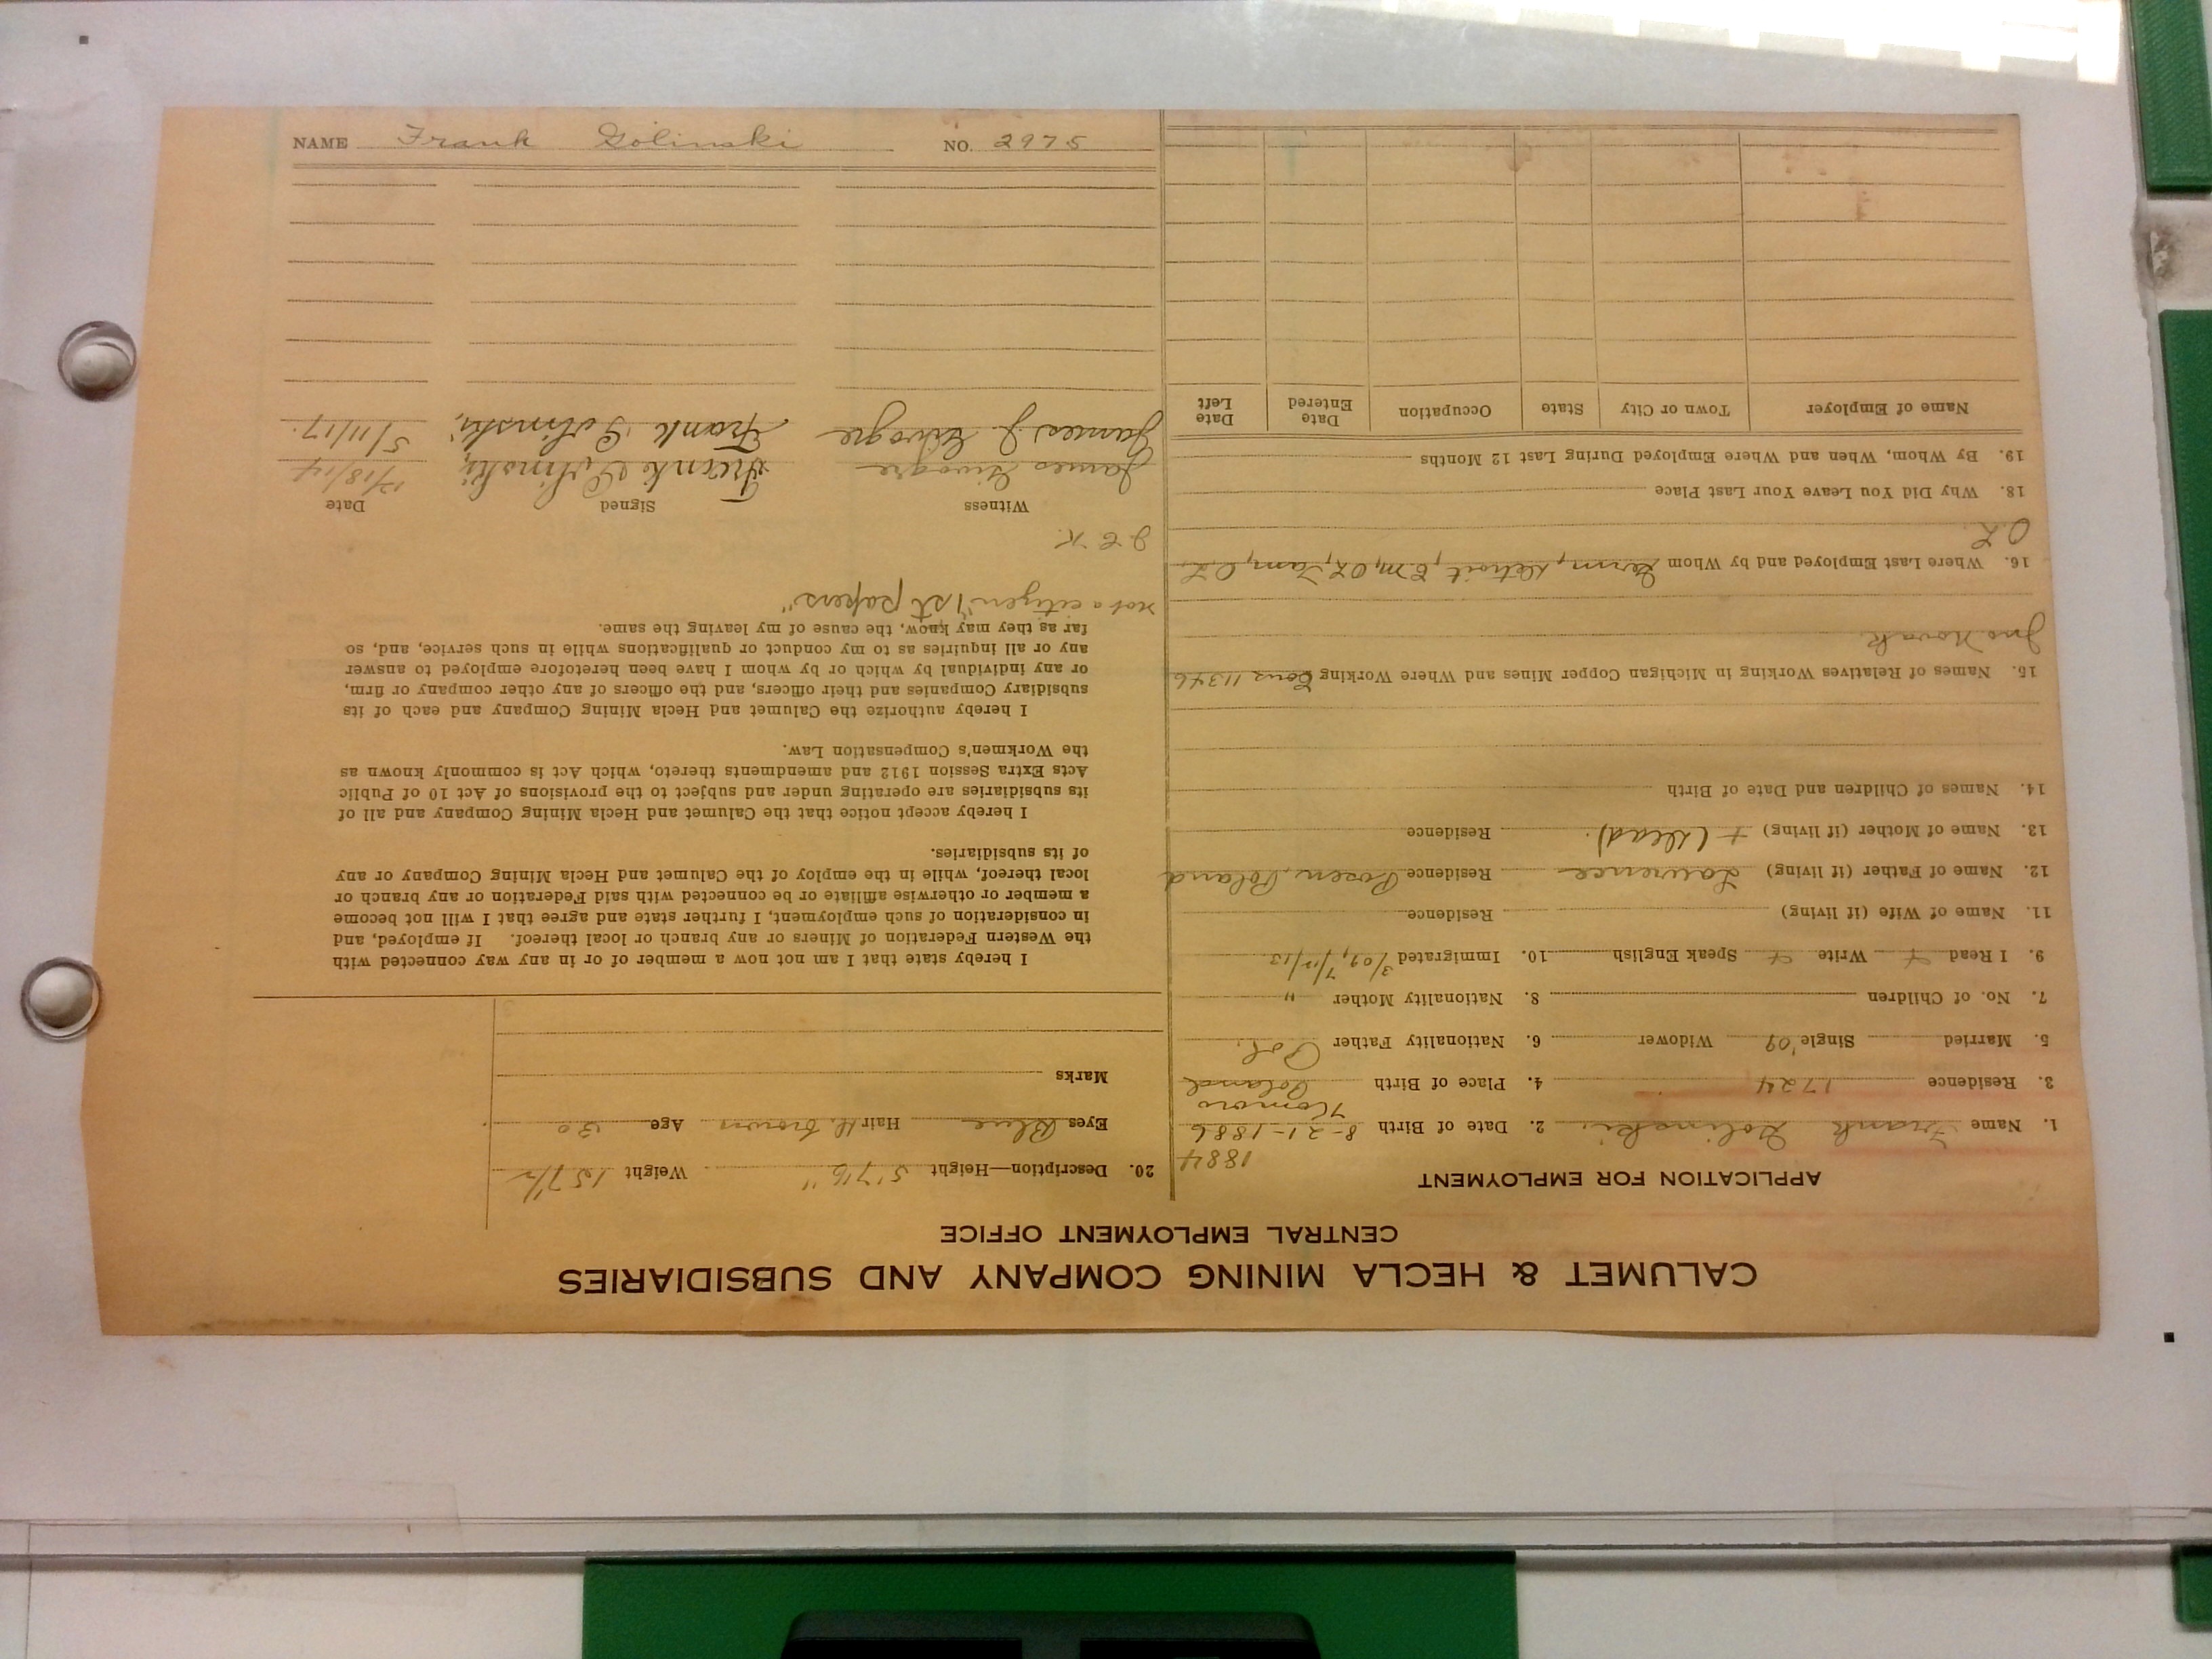 CALUMET & HECLA MINING COMPANY AND SUBSIDIARIES
CENTRAL EMPLOYMENT OFFICE
APPLICATION FOR EMPLOYMENT
1884
1. Name Frank Golinski 2. Date of Birth 8-21-1886
Komoro
3. Residence 1724 4. Place of Birth Poland
5. Married Single '09 Widower 6. Nationality Father Pol.
7. No. of Children 8. Nationality Mother "
9. I Read + Write + Speak English 10. Immigrated 3/09, 7/12/13
11. Name of Wife (if living) Residence
12. Name of Father (if living) Lawrence Residence Posen, Poland
13. Name of Mother (if living) + (Dead) Residence
14. Names of Children and Date of Birth
15. Names of Relatives Working in Michigan Copper Mines and Where Working Cous 11346
Jno Novak
16. Where Last Employed and by Whom Germ, Detroit, C M, O L, Tam, O L,
O L.
18. Why Did You Leave Your Last Place
19. By Whom, When and Where Employed During Last 12 Months
Name of Employer Town or City State Occupation Date Entered Date Left
20. Description—Height 5' 7½" Weight 157½
Eyes Blue Hair H. Brown Age 30
Marks
I hereby state that I am not now a member of or in any way connected with
the Western Federation of Miners or any branch or local thereof. If employed, and
in consideration of such employment, I further state and agree that I will not become
a member or otherwise affiliate or be connected with said Federation or any branch or
local thereof, while in the employ of the Calumet and Hecla Mining Company or any
of its subsidiaries.
I hereby accept notice that the Calumet and Hecla Mining Company and all of
its subsidiaries are operating under and subject to the provisions of Act 10 of Public
Acts Extra Session 1912 and amendments thereto, which Act is commonly known as
the Workmen's Compensation Law.
I hereby authorize the Calumet and Hecla Mining Company and each of its
subsidiary Companies and their officers, and the officers of any other company or firm,
or any individual by which or by whom I have been heretofore employed to answer
any or all inquiries as to my conduct or qualifications while in such service, and, so
far as they may know, the cause of my leaving the same.
not a citizen "1st papers"
J. E. K.
Witness Signed Date
James Frank Golinski, 12/18/14
James J. Frank Golinski, 5/11/17.
NAME Frank Golinski NO. 2975